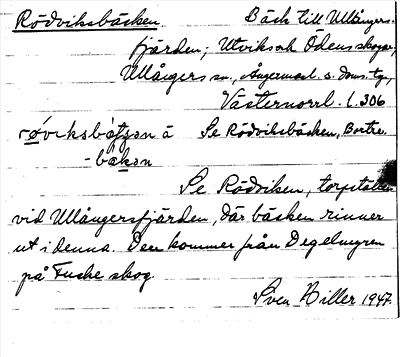 Rödviksbäcken. Bäck till Ullångers-
fjärden; Utvik och Ödens skogar,
Ullångers sn., Ångermanl. s. doms. tg.,
Västernorrl. l. 306
Se Rödviksbäcken, Bortre.
Se Rödviken, torpställe
vid Ullångersfjärden, där bäcken rinner
ut i denna. Den kommer från Degelmyren
på Fuske skog.
Sven Hiller 1947.